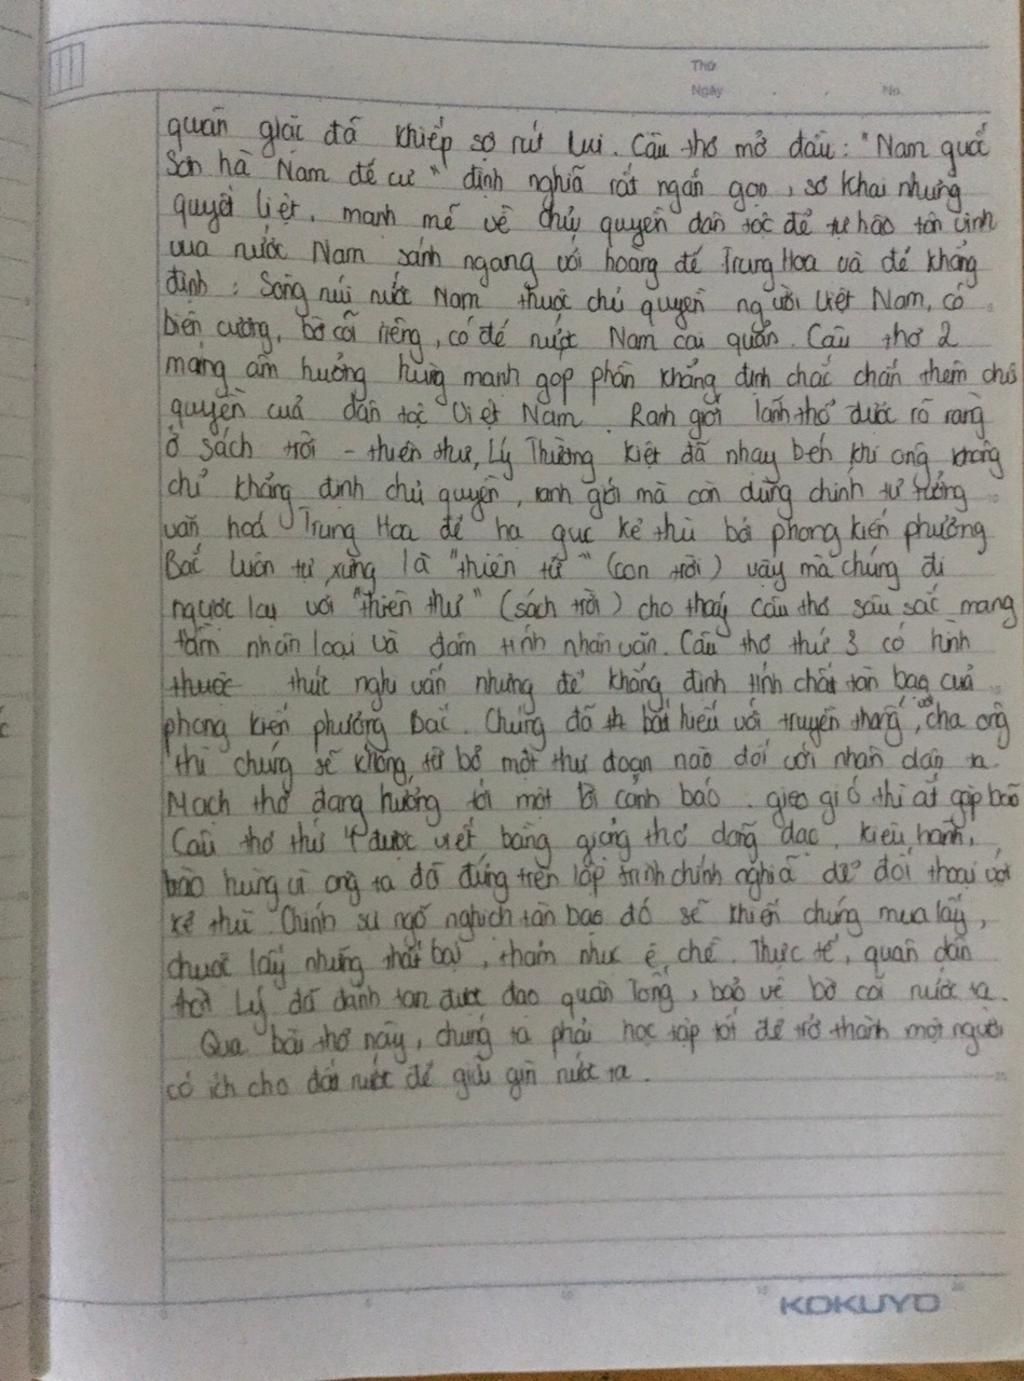 Thứ
Ngày . . No.
quân giặc đã khiếp sợ rút lui. Câu thơ mở đầu: "Nam quốc
Sơn hà Nam đế cư" định nghĩa rất ngắn gọn, sơ khai nhưng
quyết liệt, mạnh mẽ về chủ quyền dân tộc để tự hào tôn vinh
vua nước Nam sánh ngang với hoàng đế Trung Hoa và để khẳng
định: Sông núi nước Nam thuộc chủ quyền người Việt Nam, có
biên cương, bờ cõi riêng, có đế nước Nam cai quản. Câu thơ 2
mang âm hưởng hùng mạnh góp phần khẳng định chắc chắn thêm chủ
quyền của dân tộc Việt Nam. Ranh giới lãnh thổ được rõ ràng
ở sách trời - thiên thư, Lý Thường Kiệt đã nhạy bén khi ông không
chỉ khẳng định chủ quyền, ranh giới mà còn dùng chính tư tưởng
văn hoá Trung Hoa để hạ gục kẻ thù bởi phong kiến phương
Bắc luôn tự xưng là "thiên tử" (con trời) vậy mà chúng đi
ngược lại với "thiên thư" (sách trời) cho thấy câu thơ sâu sắc mang
tầm nhân loại và đậm tính nhân văn. Câu thơ thứ 3 có hình
thức nghi vấn nhưng để khẳng định tính chất tàn bạo của
phong kiến phương Bắc. Chúng đã bất hiếu với truyền thống, với cha ông
thì chúng sẽ không từ bỏ một thủ đoạn nào đối với nhân dân ta.
Mạch thơ đang hướng tới một lời cảnh báo. gieo gió thì ắt gặp bão
Câu thơ thứ 4 được viết bằng giọng thơ dõng dạc, kiêu hãnh,
hào hùng vì ông ta đã đứng trên lập trình chính nghĩa để đối thoại với
kẻ thù. Chính sự ngỗ nghịch tàn bạo đó sẽ khiến chúng mua lấy,
chuốc lấy những thất bại, thảm như ê chề. Thực tế, quân dân
thời Lý đã đánh tan được đạo quân Tống, bảo vệ bờ cõi nước ta.
Qua bài thơ này, chúng ta phải học tập tốt để trở thành một người
có ích cho đất nước để giữ gìn nước ta.
KOKUYO